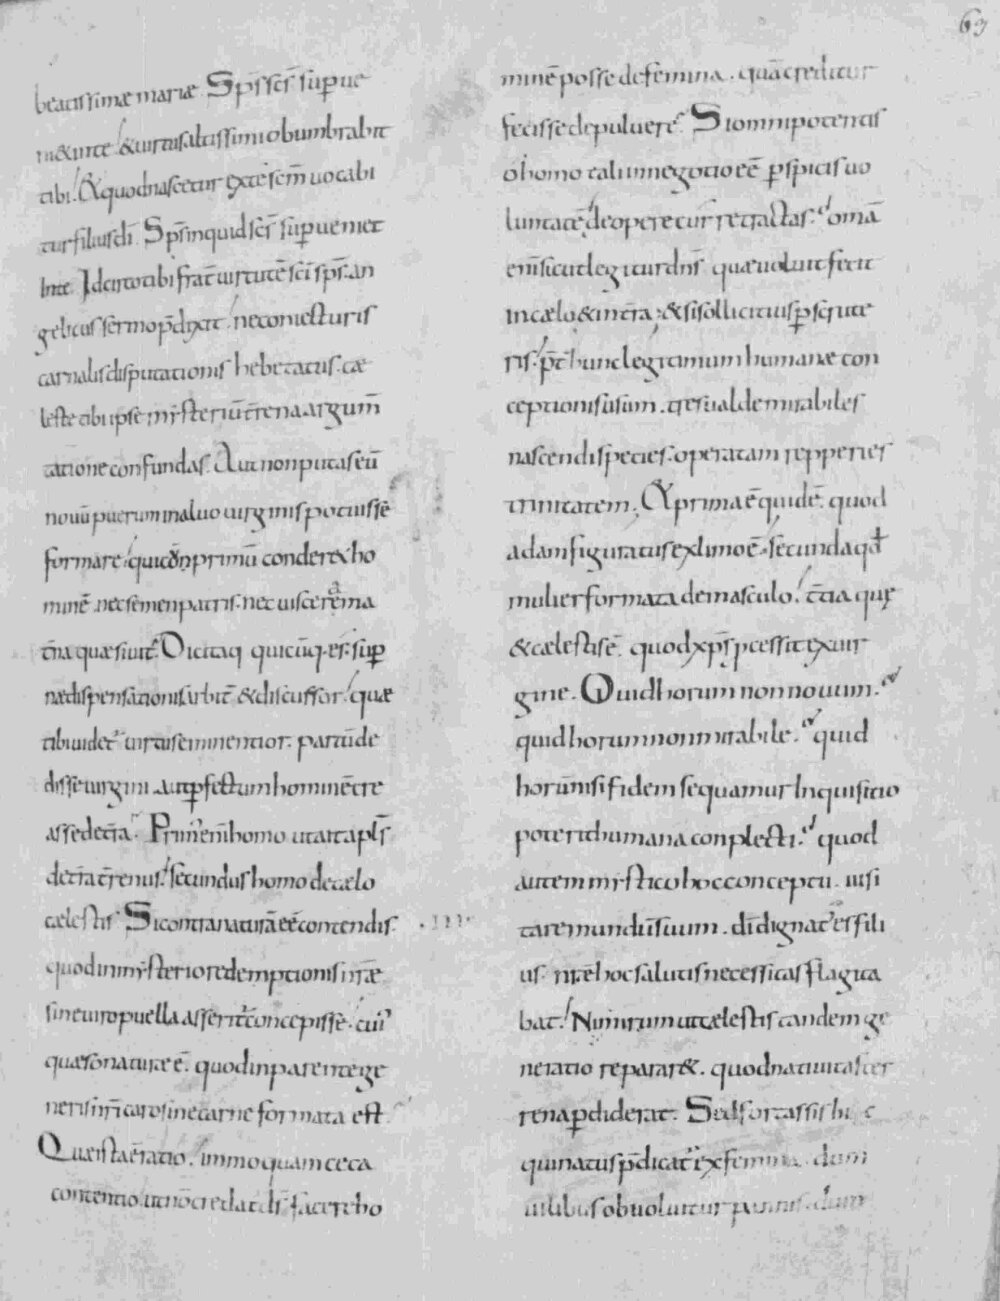 69
beatissimae mariae. Sps̄ scs̄ sup̄ue
ni& in te. & uirtus altissimi obumbrabit
tibi. Et quod nascetur ex te scm̄ uocabi
tur filius dī. Sps̄ inquid scs̄ sup̄ueniet
In te. Idcirco tibi frat̄ uirtutē scī sps̄ an
gelicus sermo p̄dixit. ne coniecturis
carnalis disputationis hebetatus. cae
leste tibi ipse mysteriū t̄rena argum̄
tatione confundas. Aut non putas eū
nouū puerum in aluo uirginis potuisse
formare. qui
minē. nec semen patris. nec uiscera ma
t̄na quaesiuit. Dicitaq quicūq. es. sup̄
nae dispensationis arbit̄ & discussor. quae
tibi uidet̄ uirtus eminentior. partū de
disse uirgini. aut p̄fectum hominē cre
asse de t̄ra. Primˀ em̄ homo ut ait apls̄.
de t̄ra t̄renus. secundus homo de caelo
caelestis. Si contra naturā eē contendis.
quod in mysterio redemptionis nr̄ae
sine uiro puella asserit̄ concepisse. cuiˀ
quaeso naturae ē. quod in parente ge
neris nr̄i caro sine carne formata est.
Quae ista ē ratio. immo quam ceca
contentio. ut nō credat dm̄ facere ho
minē posse de femina. quā creditur
fecisse de puluere. Si omnipotentis
o homo tali in negotio eē p̄spicis uo
luntatē. de opere cur retractas. omā
em̄ sicut legitur dn̄s quae uoluit fecit
in caelo & in t̄ra. & si sollicitius p̄scrute
ris. p̄t hunc legitimum humanae con
ceptionis usum. tres ualde mirabiles
nascendi species. operatam repperies
trinitatem. Et prima ē quidē. quod
adam figuratus ex limo ē. secunda qd̄
mulier formata de masculo. t̄tia quę
& caelestis ē. quod xps̄ pcessit ex uir
gine. Quid horum non nouum.
quid horum non mirabile. quid
horū nisi fidem sequamur Inquisitio
poterit humana conplecti. quod
autem mystico hoc conceptu. uisi
tare mundū suum. dī dignatˀ es fili
us. nr̄ae hoc salutis necessitas flagita
bat. Nimirum ut caelestis tandem ge
neratio repararet. quod natiuitas ter
rena p̄diderat. Sed fortassis hic
qui natus p̄dicat̄ ex femina. dum
uilibus obuoluitur pannis. dum